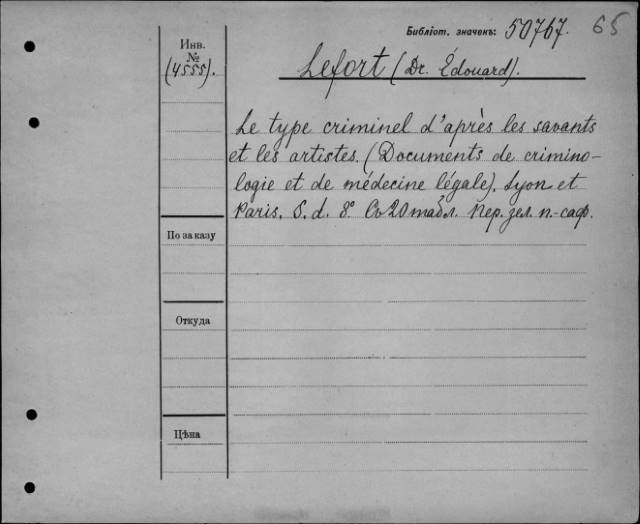 Библіот. значекъ: 50767. 65
Инв.
№
(4555).
Lefort (Dr. Édouard).
Le type criminel d'après les savants
et les artistes. (Documents de crimino-
logie et de médecine légale). Lyon et
Paris. S. d. 8° Съ 20 табл. Пер. зел. п.-саф.
По заказу
Откуда
Цѣна